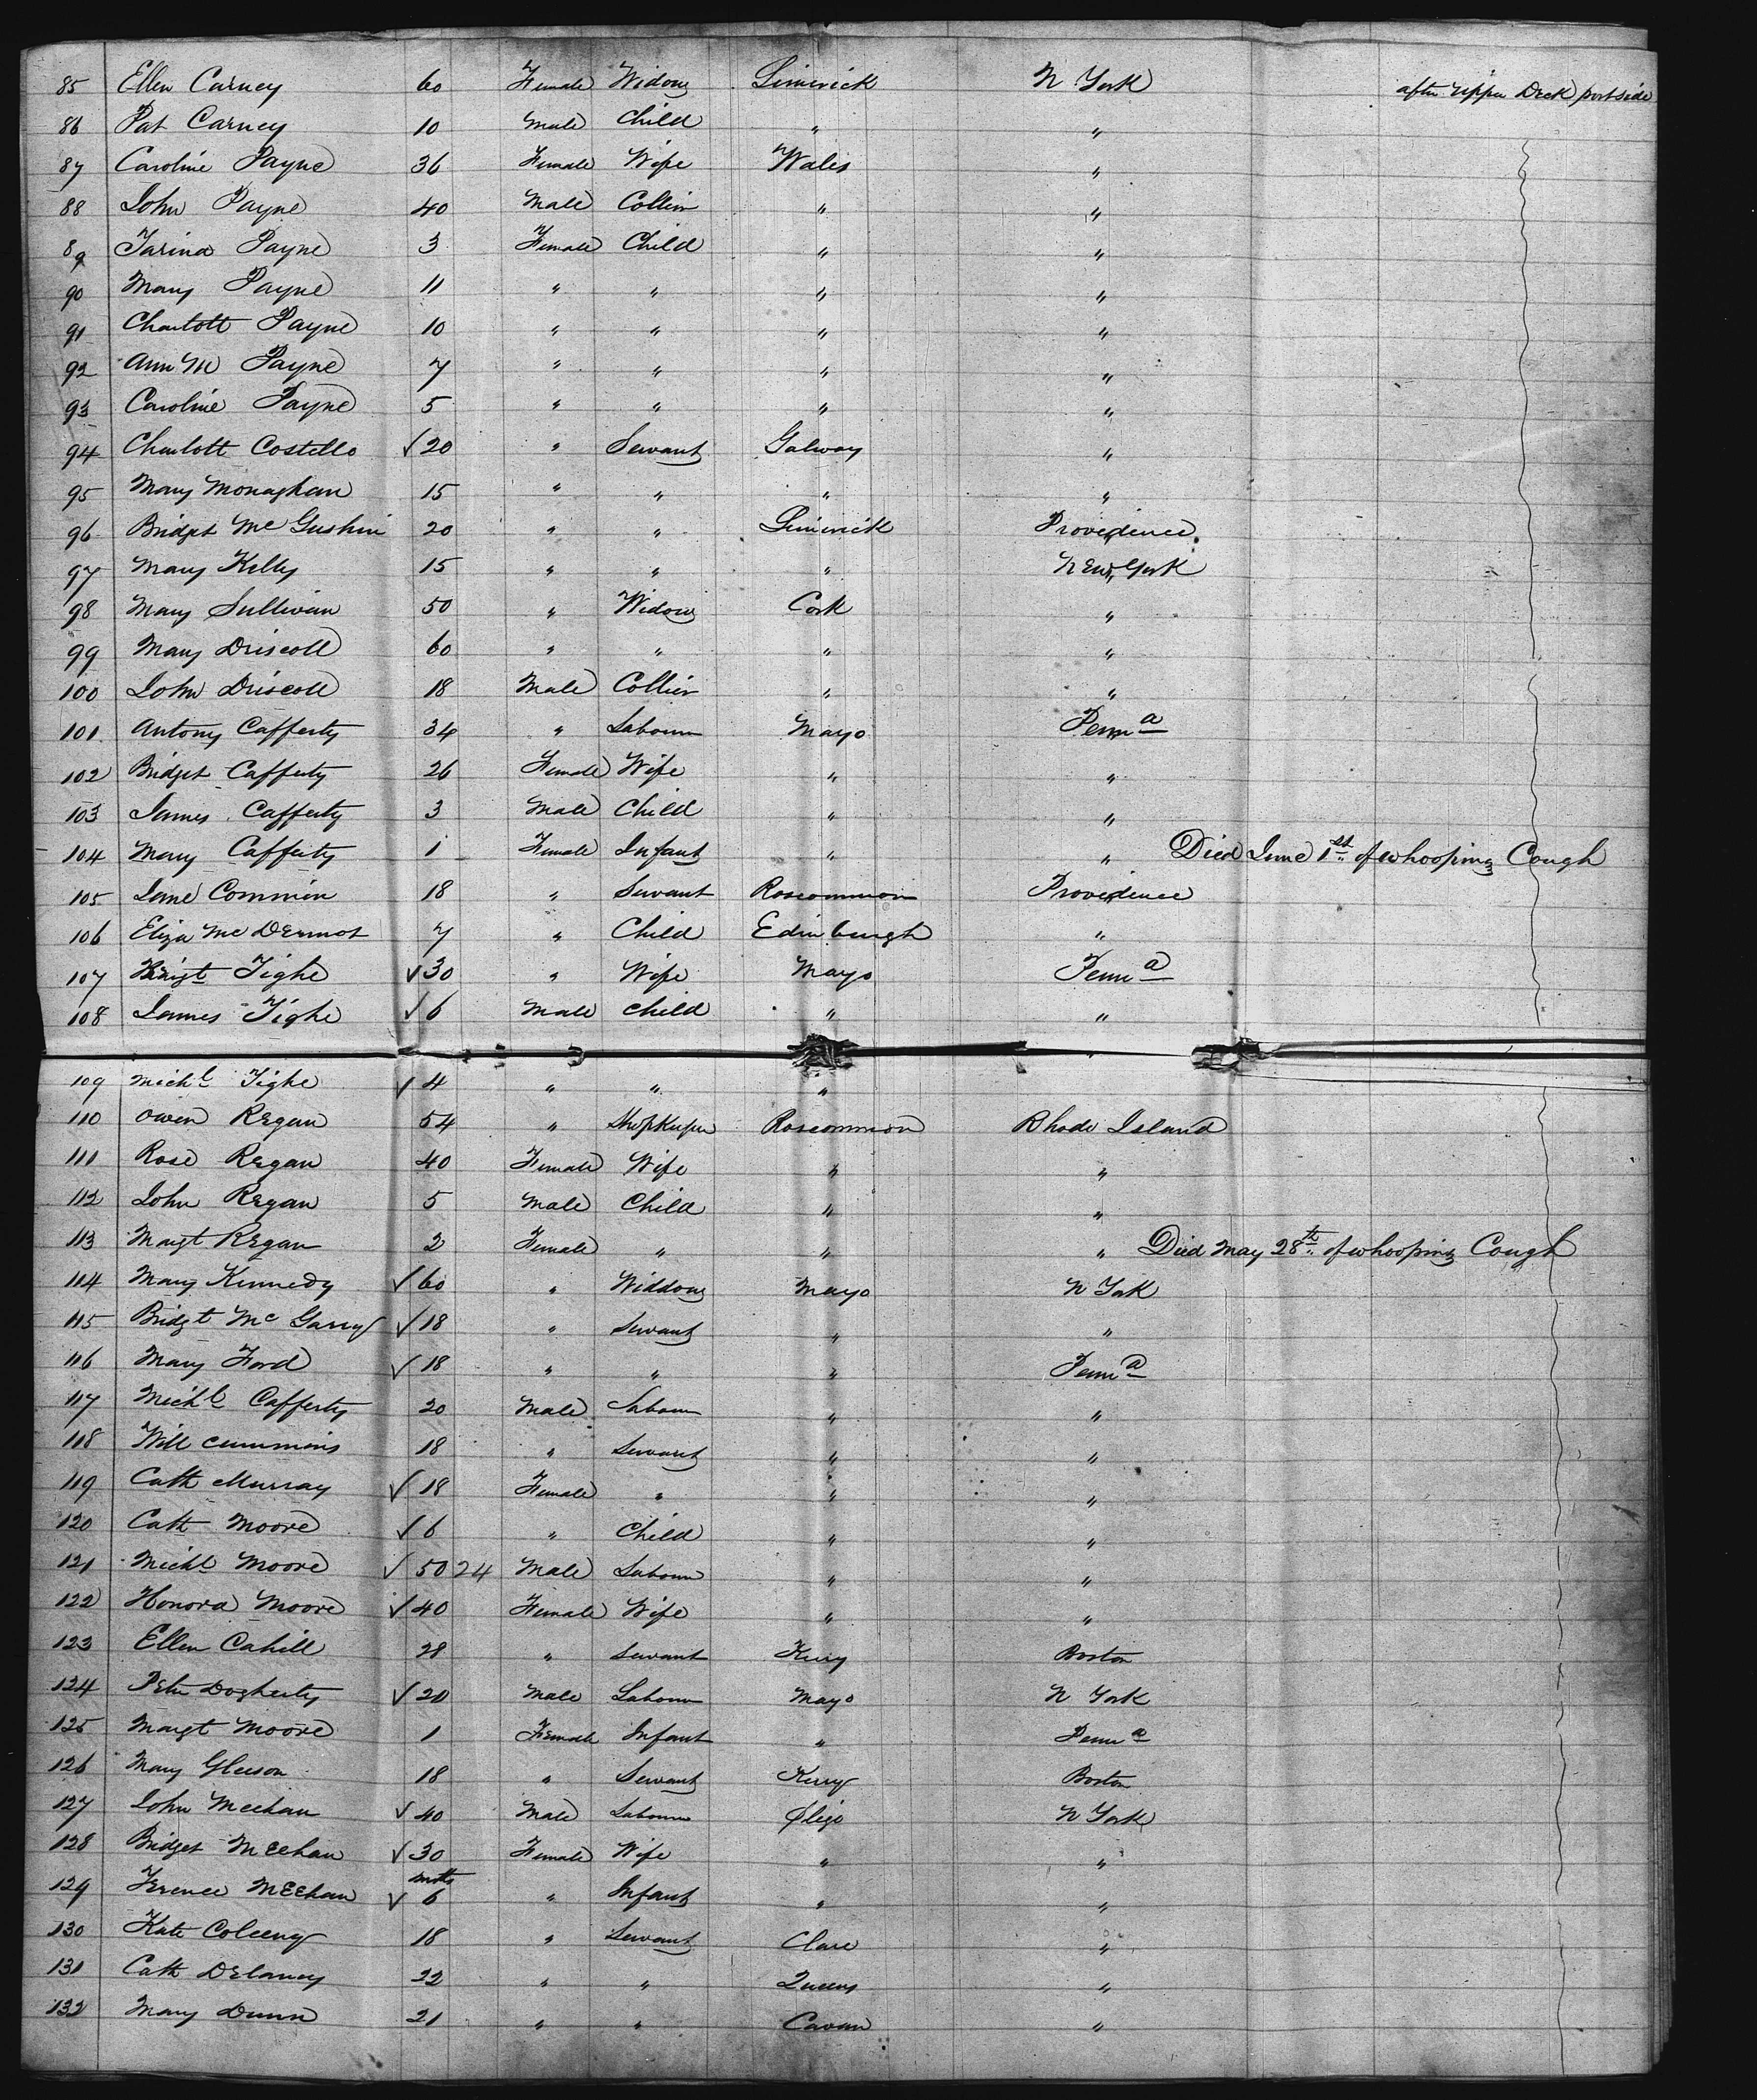 85 Ellen Carney 60 Female Widow Limerick N York after upper Deck portside
86 Pat Carney 10 Male Child " "
87 Caroline Payne 36 Female Wife Wales "
88 John Payne 40 Male Collier " "
89 Payne 3 Female Child " "
90 Mary Payne 11 " " " "
91 Charlott Payne 10 " " " "
92 Ann M Payne 7 " " " "
93 Caroline Payne 5 " " " "
94 Charlott Costello √ 20 " Servant Galway "
95 Mary Monaghan 15 " " " "
96 Bridget Mc 20 " " Limerick Providence
97 Mary Kelly 15 " " " New York
98 Mary Sullivan 50 " Widow Cork "
99 Mary Driscoll 60 " " " "
100 John Driscoll 18 Male Collier " "
101 Antony Cafferty 34 " Labourer Mayo Penna
102 Bridget Cafferty 26 Female Wife " "
103 James Cafferty 3 Male Child " "
104 Mary Cafferty 1 Female Infant " " Died June 1st of whooping Cough
105 Jane Commin 18 " Servant Roscommon Providence
106 Eliza McDermot 7 " Child Edinburgh "
107 Tighe √ 30 " Wife Mayo Penna
108 James Tighe √ 6 Male Child " "
109 Michl Tighe √ 4 " " " "
110 Owen Regan 54 " Shopkeeper Roscommon Rhode Island
111 Rose Regan 40 Female Wife " "
112 John Regan 5 Male Child " "
113 Margt Regan 2 Female " " " Died May 28th of whooping Cough
114 Mary Kennedy √ 60 " Widdow Mayo N York
115 Bridgt Mc Garry √ 18 " Servant " "
116 Mary Ford √ 18 " " " Penna
117 Michl Cafferty 20 Male Labour " "
118 Will Cummins 18 " Servant " "
119 Cath Murray √ 18 Female " " "
120 Cath Moore √ 6 " Child " "
121 Michl Moore √ 50 24 Male Labour " "
122 Honora Moore √ 40 Female Wife " "
123 Ellen Cahill 28 " Servant Kerry Boston
124 Peter Dogherty √ 20 Male Labour Mayo N York
125 Margt Moore 1 Female Infant " Penna
126 Mary Gleeson 18 " Servant Kerry Boston
127 John Meehan √ 40 Male Labour Sligo N York
128 Bridget Meehan √ 30 Female Wife " "
129 Terence Meehan √ 6 mths " Infant " "
130 Kate 18 " Servant Clare "
131 Cath Delaney 22 " " Queens "
132 Mary Dunn 21 " " Cavan "